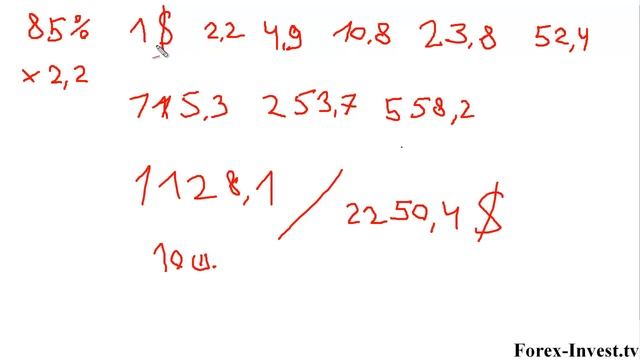 85% 1$ 2,2 4,9 10,8 23,8 52,4
x 2,2
115,3 253,7 558,2
1128,1 / 2250,4 $
10 ш.
Forex-Invest.tv